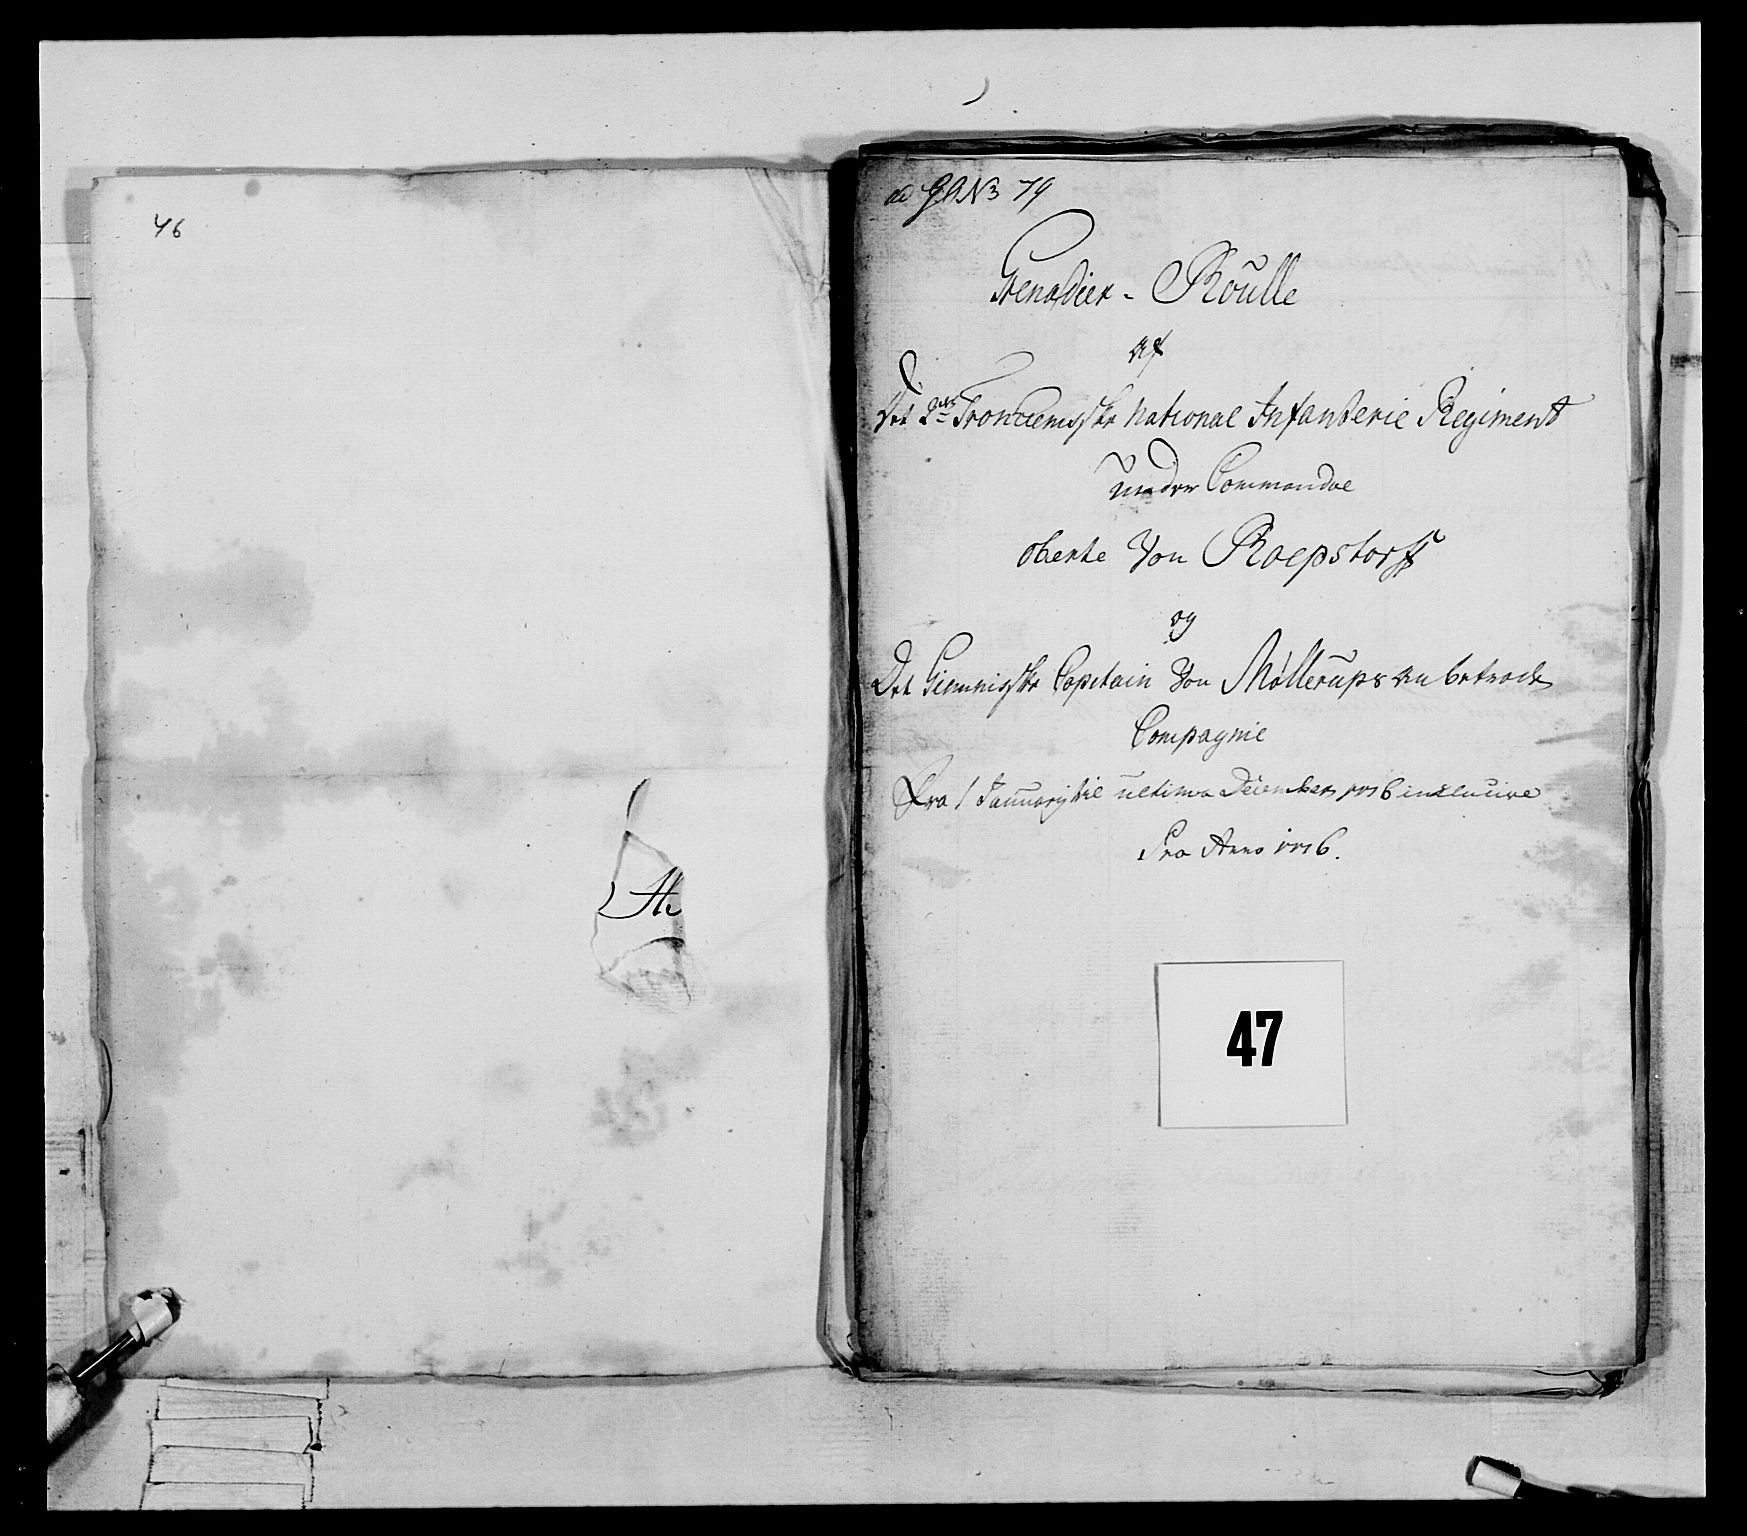 46
He
ad No 79
Grenadier-Roulle
Af
Det 2det Tronhiemsske National Infanterie Regiment
under Commandoe
Oberste Von Roepstorff
og
Det Giemnisske Capitain Von Møllerups anbetroede
Compagnie
Fra 1 January til ultima December 1776 inclusive
Pro Anno 1776.
47